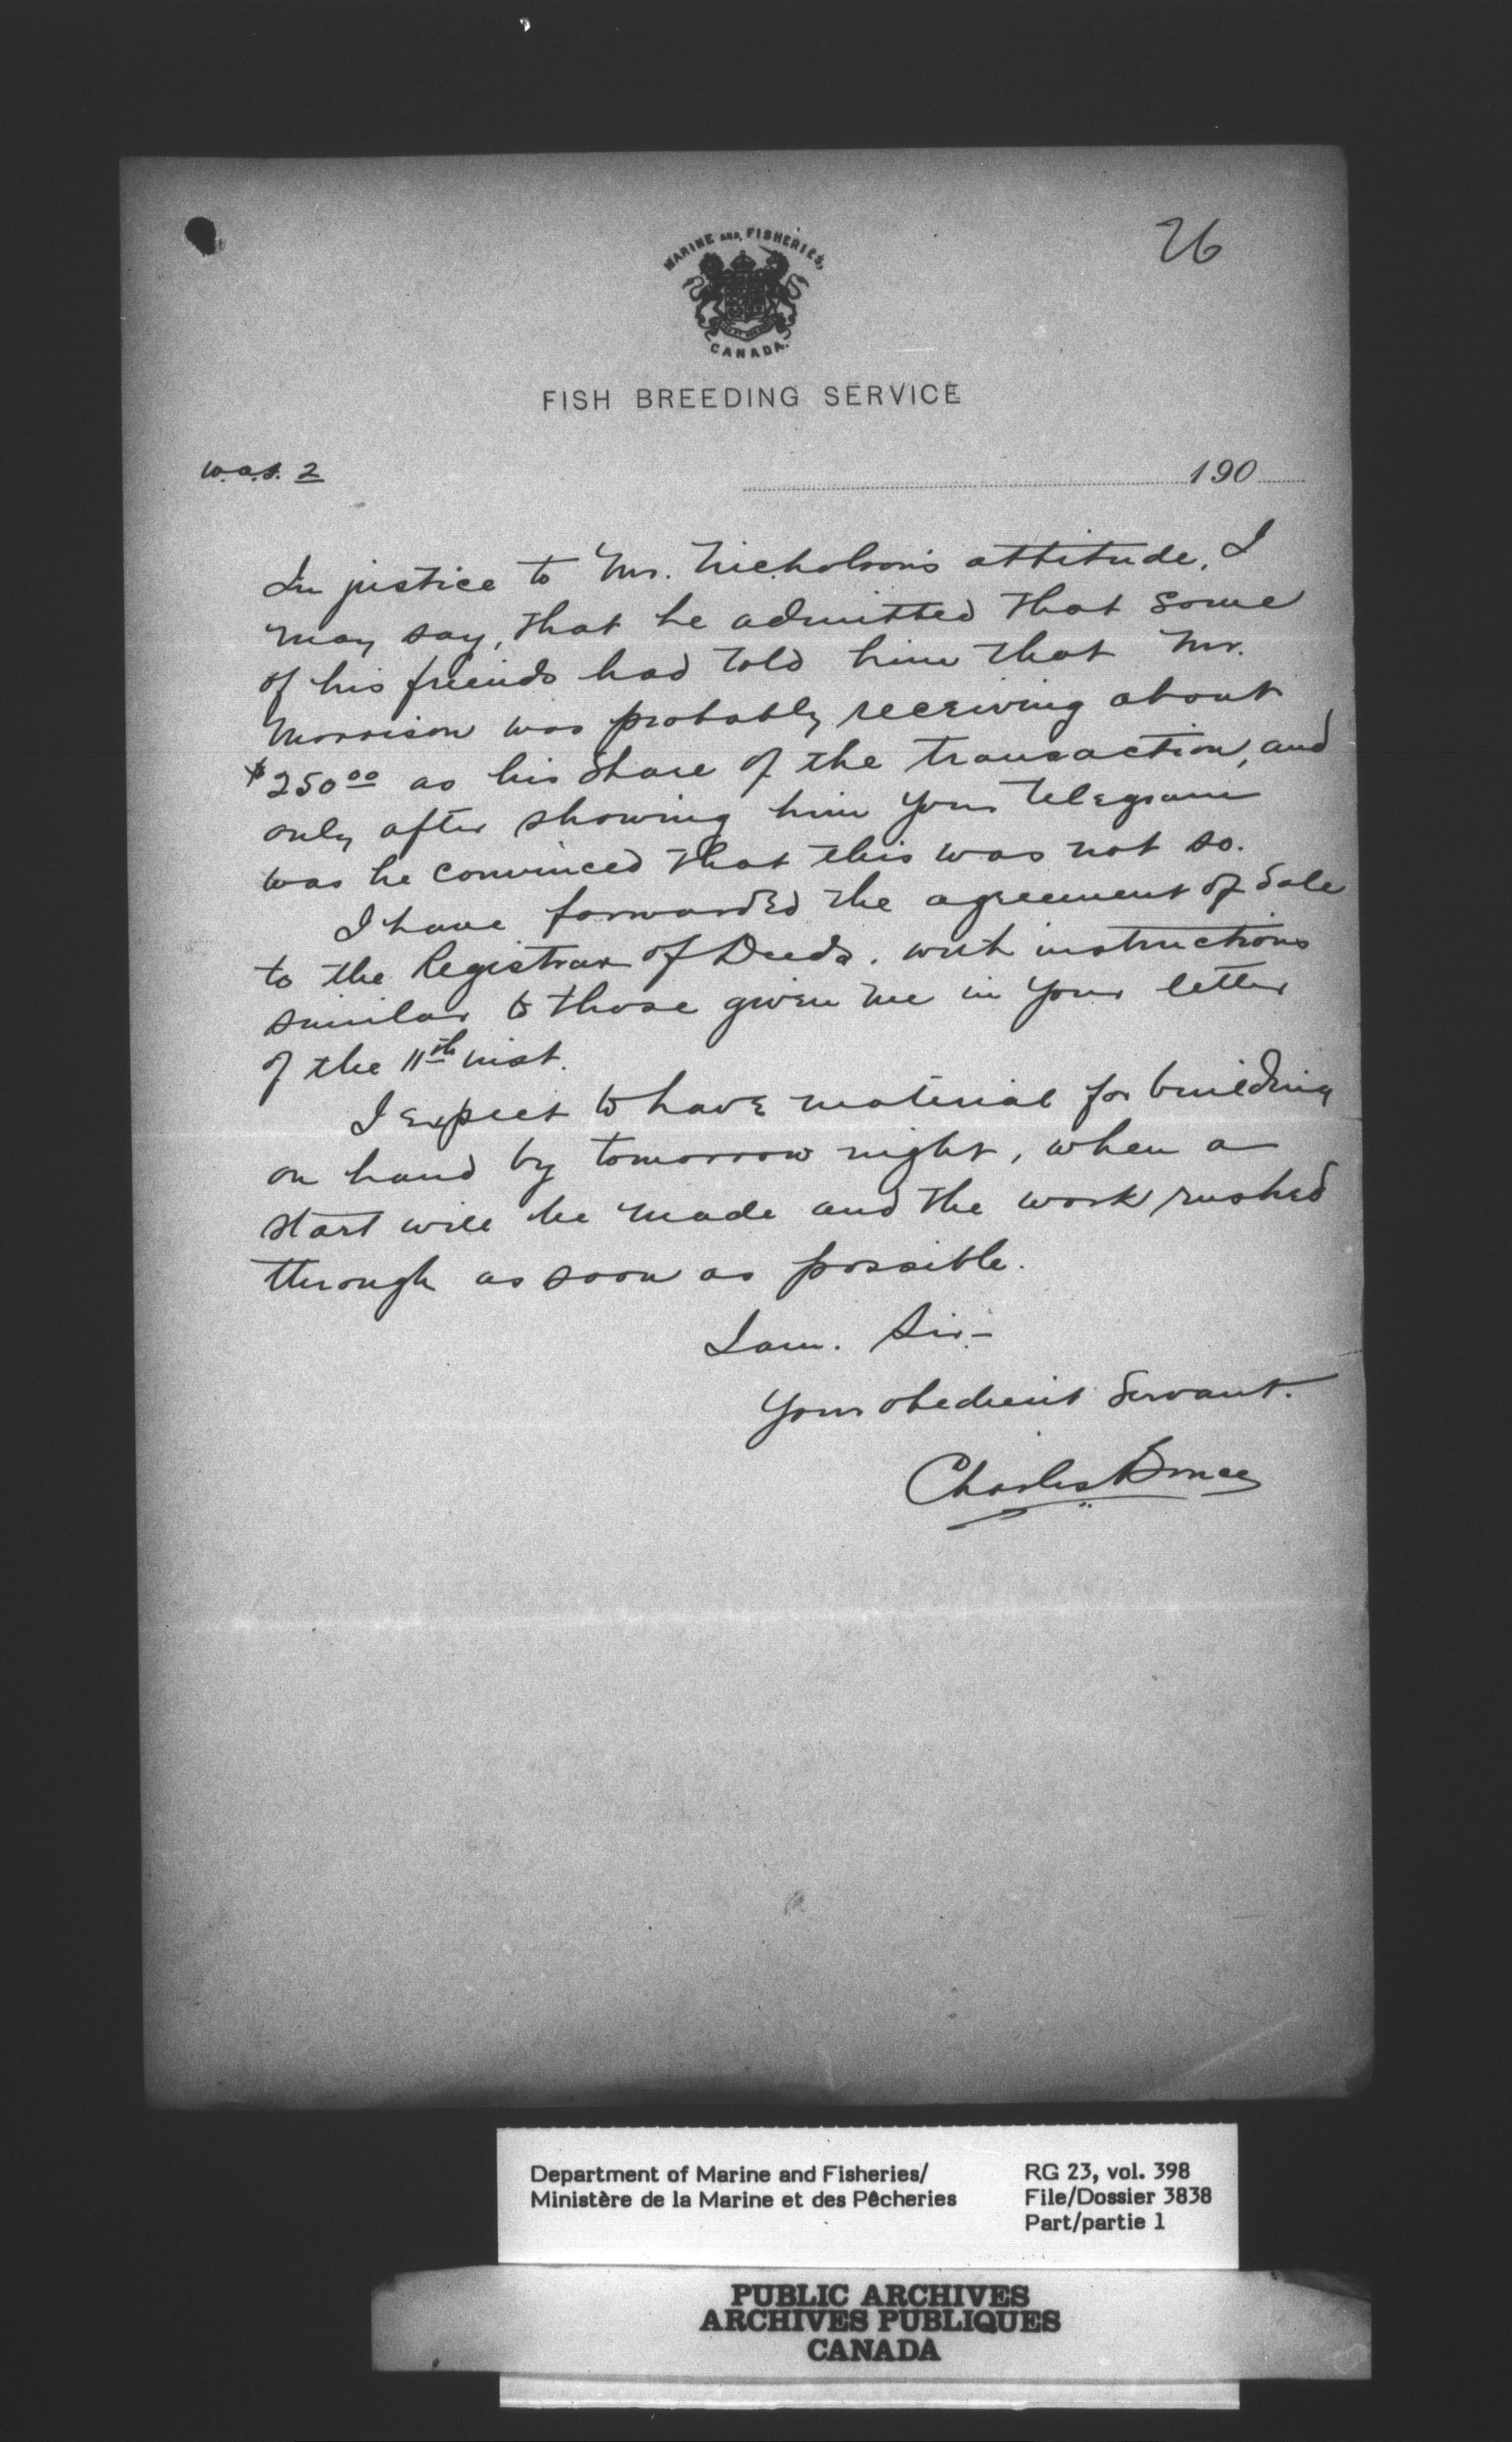 26
MARINE AND FISHERIES,
CANADA.
FISH BREEDING SERVICE
W.A.S. 2
190
In justice to Mr. Nicholson's attitude, I
may say, that he admitted that some
of his friends had told him that Mr.
Morrison was probably receiving about
$250.00 as his share of the transaction, and
only after showing him your telegram
was he convinced that this was not so.
I have forwarded the agreement of Sale
to the Registrar of Deeds. with instructions
similar to those given me in your letter
of the 11th inst.
I expect to have material for building
on hand by tomorrow night, when a
start will be made and the work rushed
through as soon as possible.
I am. Sir-
Your obedient Servant.
Charles Bruce
Department of Marine and Fisheries/
Ministère de la Marine et des Pêcheries
RG 23, vol. 398
File/Dossier 3838
Part/partie 1
PUBLIC ARCHIVES
ARCHIVES PUBLIQUES
CANADA